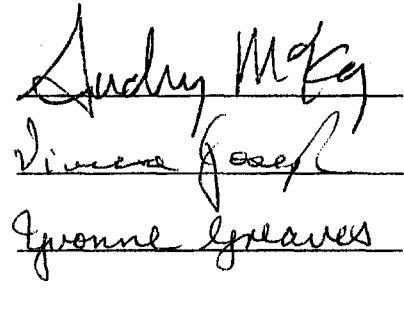 Audry McKay
Joseph
Yvonne Greaves